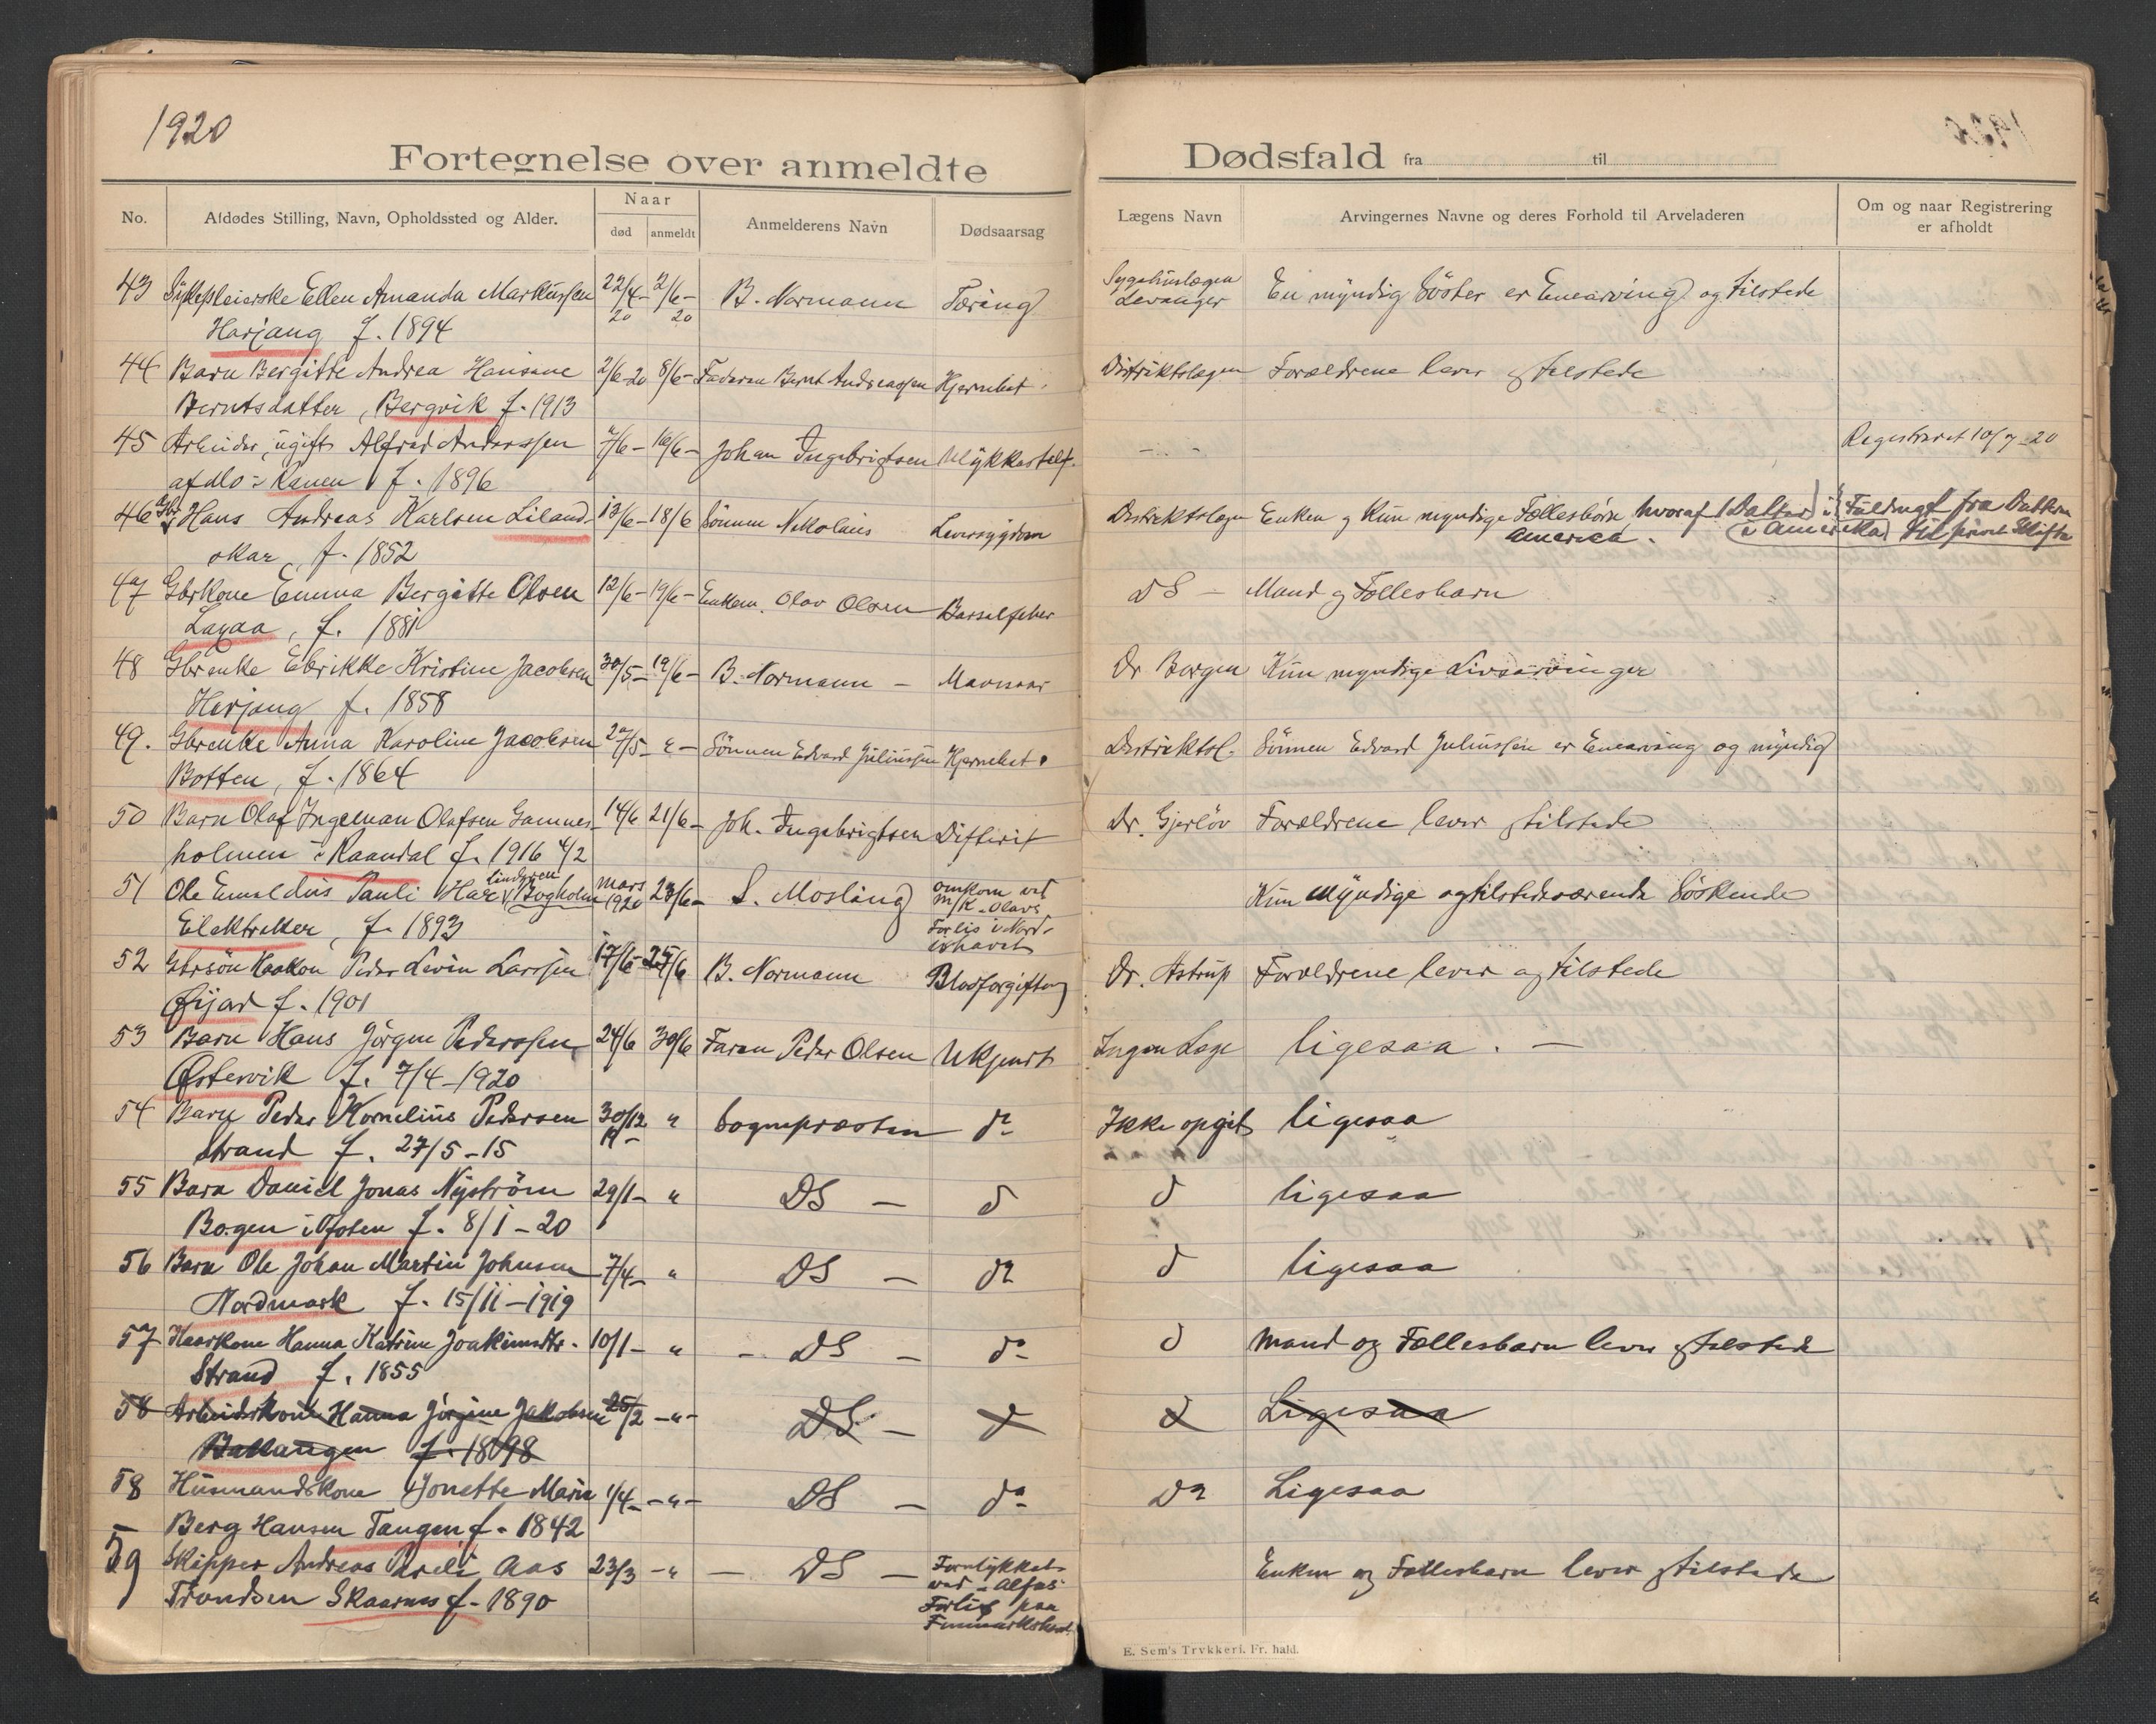 1920
Fortegnelse over anmeldte Dødsfald fra til
No. Afdødes Stilling, Navn, Opholdssted og Alder. Naar Anmelderens Navn Dødsaarsag Lægens Navn Arvingernes Navne og deres Forhold til Arveladeren Om og naar Registrering
død anmeldt er afholdt
43 Sykepleierske Ellen Amanda Markussen 22/4- 2/6- B. Normann Tæring Sygehuslægen En myndig Söster er Enearving og tilstede
20 20 Levanger
Harjang f. 1894
44 Barn Bergitte Andrea Hansine 2/6-20 8/6- Faderen Bernt Andreassen Hjernebet. Distriktslægen Forældrene lever og tilstede
Berntsdatter, Bergvik f. 1913
45 Arbeider, ugift Alfred Anderssen 7/6- 16/6- Johan Ingebrigtsen Ulykkestilf. - - Registreret 10/7-20
Kanen f. 1896
46 Gbr Hans Andreas Karlsen Liland- 13/6- 18/6 Sönnen Nikolaus Leversygdom Distriktslægen Enken og Kun myndige Fællesbörn, hvoraf 1 Datter i Fuldmagt fra Datteren
America. i Amerika til privat Skifte
f. 1852
47 Gbrkone Emma Bergitte Olsen 12/6- 19/6- Enkem. Olav Olsen Barselfeber DS - Mand og Fællesbarn
Laxaa, f. 1881
48 Gbrenke Elerikke Kristine Jacobsen 30/5- 19/6- B. Normann - Mavesaar Dr Borgen Kun myndige Livsarvinger
Herjang f. 1858
49. Gbrenke Anna Karoline Jacobsen 27/5- " - Sönnen Edvard Juliussen Hjernebet. Distriktsl. Sönnen Edvard Juliussen er Enearving og myndig
Botten, f. 1864
50 Barn Olaf Ingeman Olafsen Hammes- 14/6 21/6- Joh. Ingebrigtsen Difterit Dr. Gjerlöv Forældrene lever og tilstede
holmen i Raandal f. 1916 4/2
lindgren
51 Ole Emeldus Pauli Bogholm mars 23/6- L. Mosling omkom ved Kun Myndige og tilstedeværende Söskende
1920 M/K Olavs
Elektriker, f. 1893 Forlis i Nord-
ishavet
52 Gbrsön Haakon Peder Levin Larssen 17/6- 25/6 B. Normann Blodforgiftng Dr. Astrup Forældrene lever og tilstede
Öijord f. 1901
53 Barn Hans Jörgen Pederssen 24/6 30/6 Faren Peder Olsen Ukjendt Ingen Læge ligesaa. -
Østervik f. 7/4-1920
54 Barn Peder Kornelius Pedersen 30/12 " Sognepræsten do Ikke opgit ligesaa
19-
Strand f. 27/5-15
55 Barn Daniel Jonas Nyström 29/1- " DS - d d ligesaa
Bogen i Ofoten f. 8/1-20
56 Barn Ole Johan Martin Johnsen 7/4- " DS - do d ligesaa
Nordmark f. 15/11-1919
57 Kaarkone Hanna Katrine Joakimsdtr. 10/1- " - DS - do d Mand og Fællesbarn lever og tilstede
Strand f. 1855
58 Arbeiderkone Hanna Jörgine Jakobsen 25/2 -"- DS - d d Ligesaa
Ballangen f. 1898
58 Husmandskone Jonette Marie 1/4- -"- DS - do do Ligesaa
Berg Hansen Tangen f. 1842
59 Skipper Andreas Pareli Aas 23/3 -" - DS - Forulykket Enken og Fællesbarn lever og tilstede
ved "Alfas"
Trondsen Skaarnes f. 1890 Forlis paa
Finmarkskyst.
E. Sem's Trykkeri. Fr. hald.